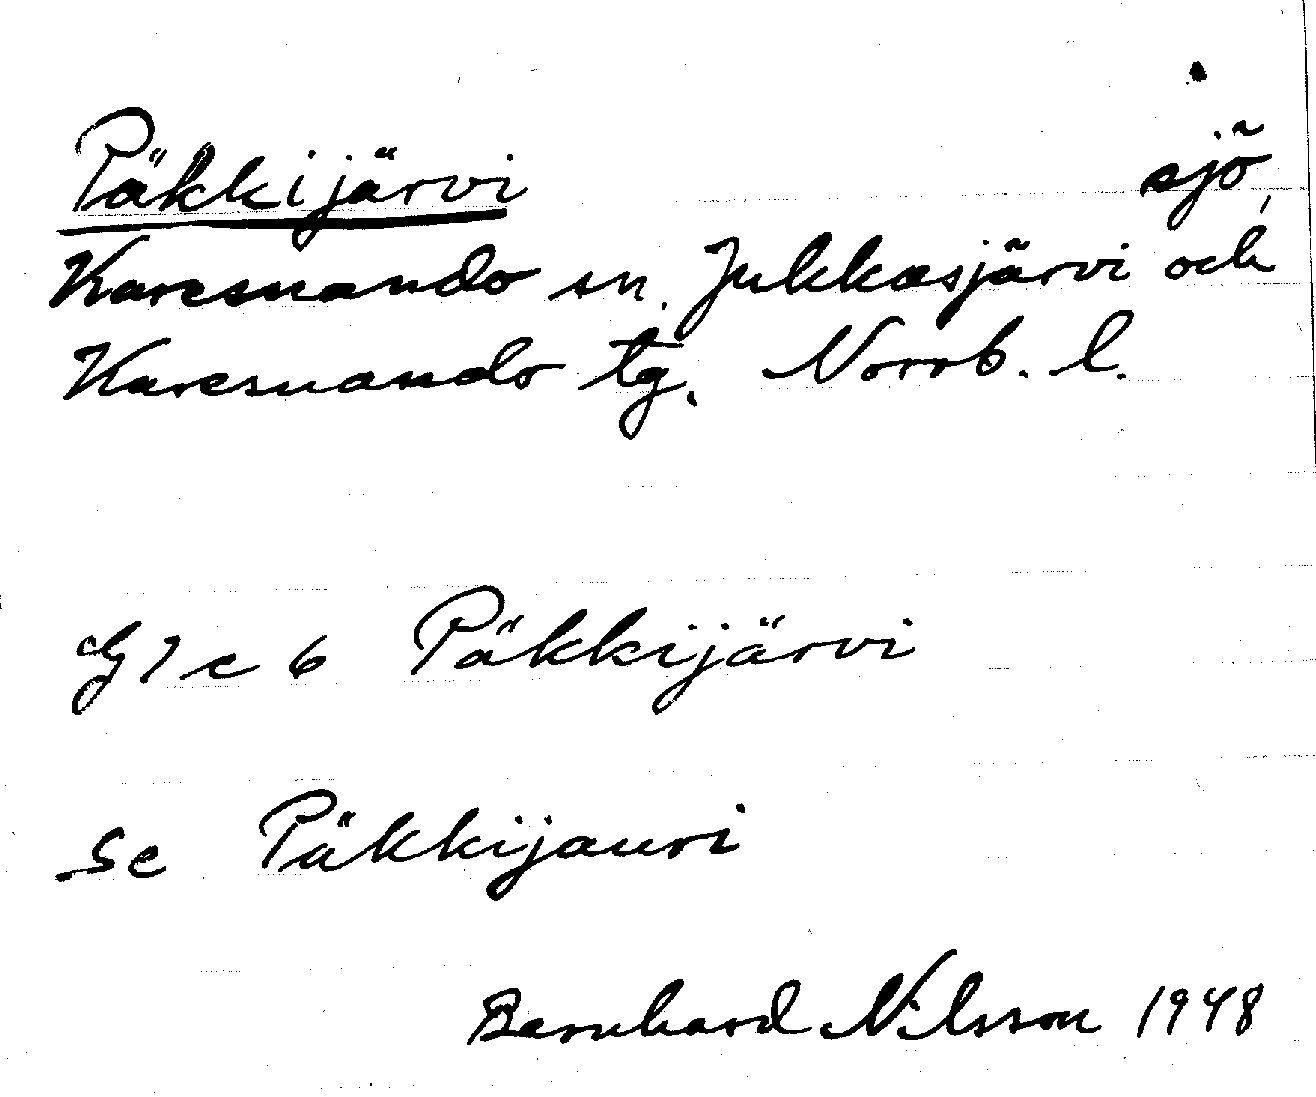 Päkkijärvi sjö,
Karesuando sn. Jukkasjärvi och
Karesuando tg. Norrb. l.
G 7 c 6 Päkkijärvi
Se Päkkijauri
Bernhard Nilsson 1948